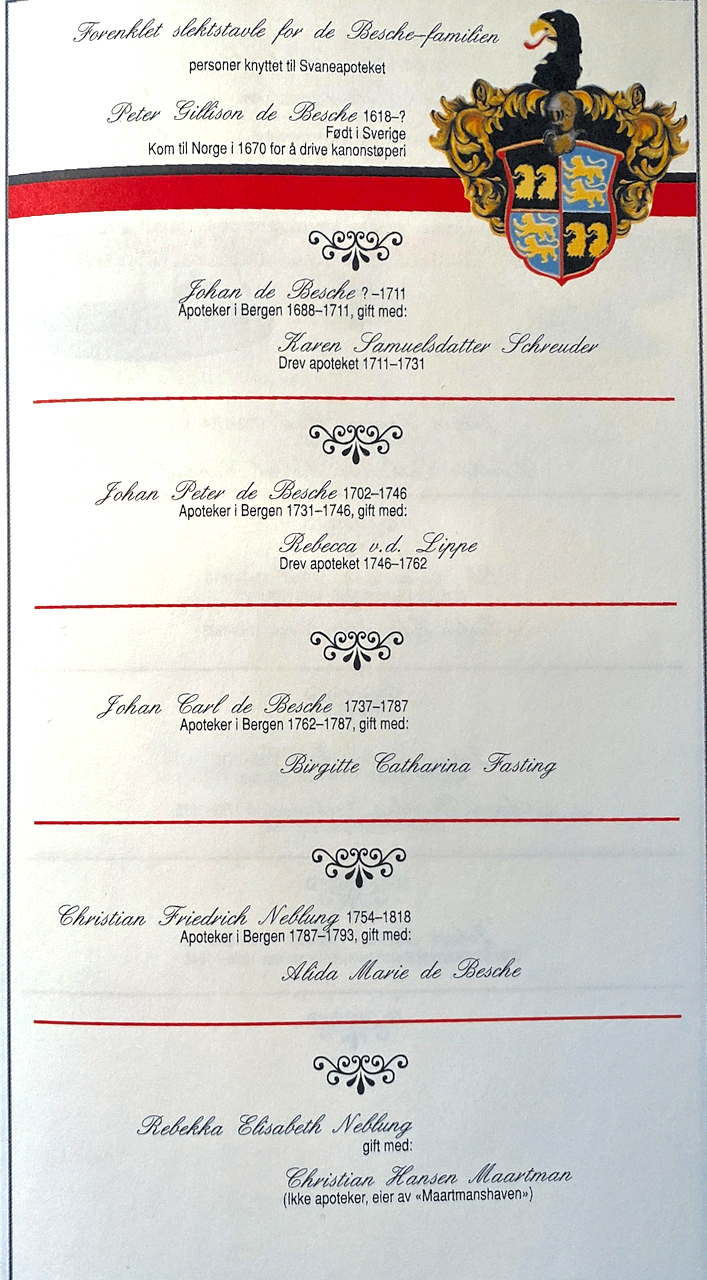 Forenklet slektstavle for de Besche-familien
personer knyttet til Svaneapoteket
Peter Gillison de Besche 1618–?
Født i Sverige
Kom til Norge i 1670 for å drive kanonstøperi
Johan de Besche ? –1711
Apoteker i Bergen 1688–1711, gift med:
Karen Samuelsdatter Schreuder
Drev apoteket 1711–1731
Johan Peter de Besche 1702–1746
Apoteker i Bergen 1731–1746, gift med:
Rebecca v.d. Lippe
Drev apoteket 1746–1762
Johan Carl de Besche 1737–1787
Apoteker i Bergen 1762–1787, gift med:
Birgitte Catharina Fasting
Christian Friedrich Neblung 1754–1818
Apoteker i Bergen 1787–1793, gift med:
Alida Marie de Besche
Rebekka Elisabeth Neblung
gift med:
Christian Hansen Maartman
(Ikke apoteker, eier av «Maartmanshaven»)